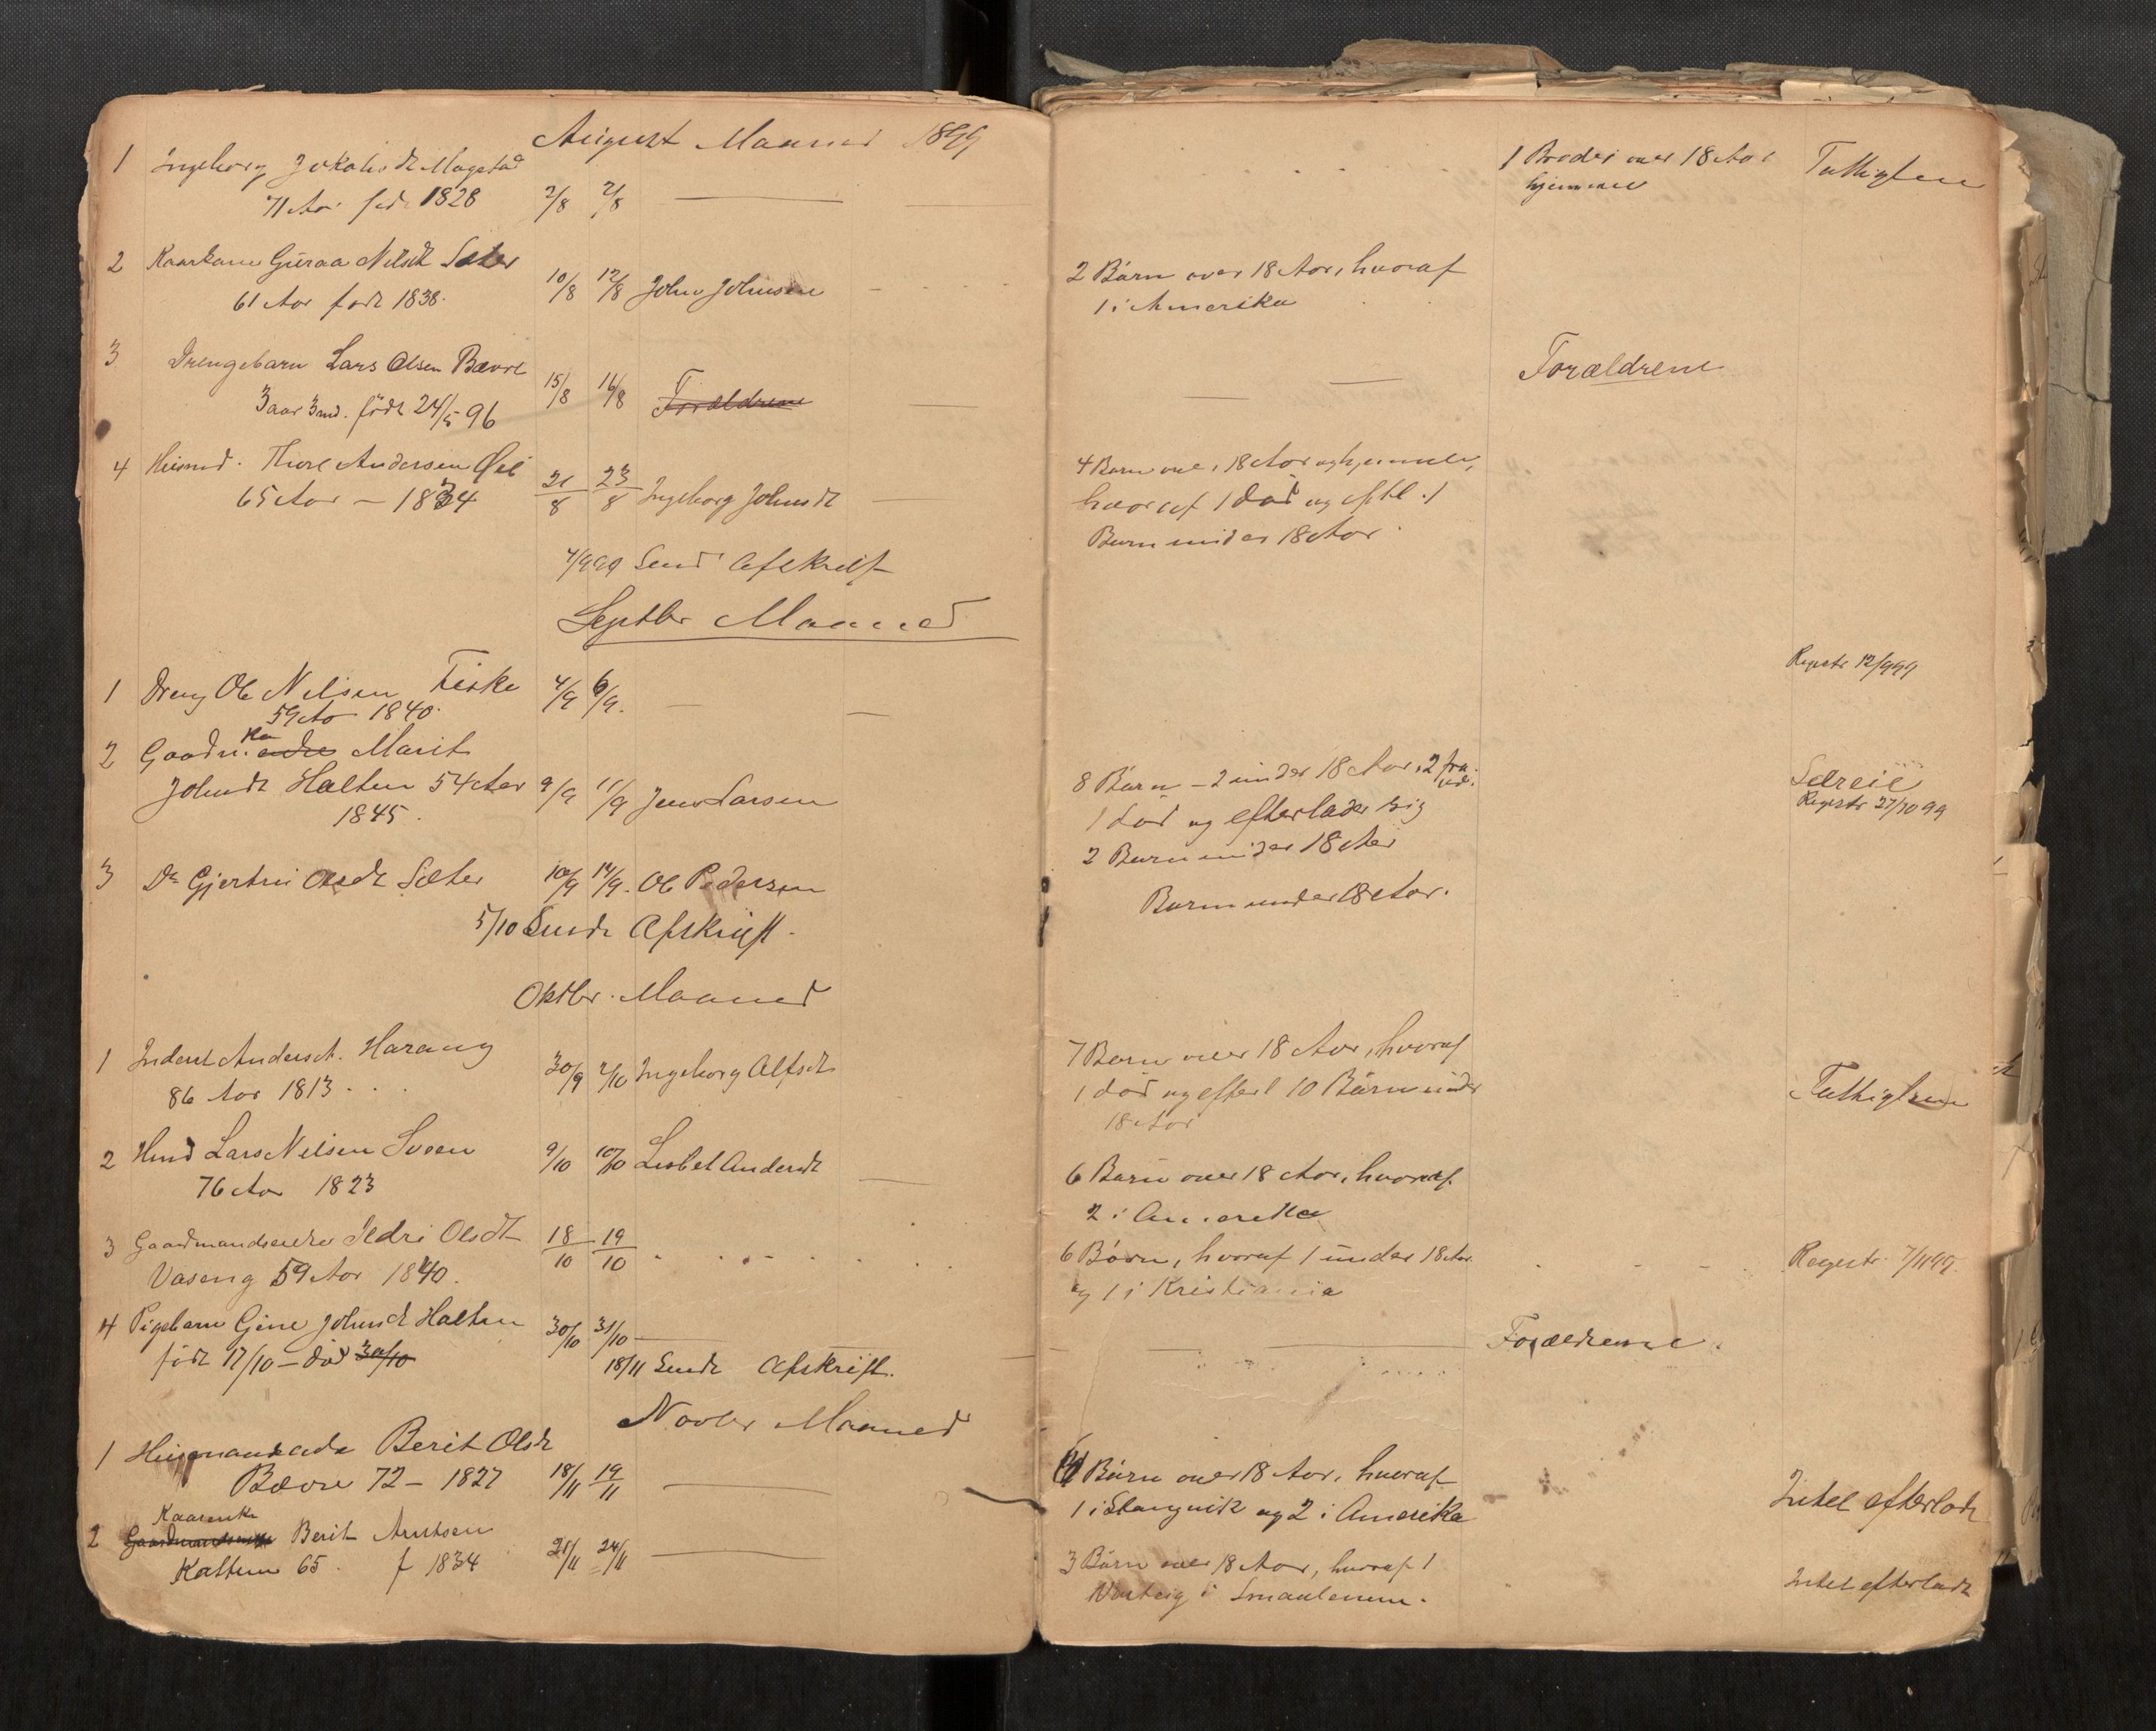 August Maaned 1899
1 Ingeborg Jokobsdt Magstad
71 Aar fød 1828 2/8 7/8
1 Broder over 18 Aar
hjemme
Fattiglem
2 Kaarkone Guraa Nilsdt Sæter
61 Aar født 1838. 10/8 12/8 John Johnsen
2 Børn over 18 Aar, hvoraf
1 i Amerika
3 Drengebarn Lars Olsen Bævre
3 aar 3 md. født 24/5 96 15/8 16/8 Forældrene
Forældrene
4 Husmd. Thore Andersen Øie
65 Aar – 1834 21/8 23/8 Ingeborg Johnsdt
4 Børn over 18 Aar og hjemme,
hvoraf 1 død og eftl. 1
Barn under 18 Aar.
7/9 99 Send Afskrift
Septbr Maaned
1 Dreng Ole Nilsen Fiske 4/9 6/9.
59 Aar 1840.
Registr 12/9 99
2 Gaardm. Ko enke Marit
Johnsdt Halten 54 Aar 9/9 11/9 Jens Larsen
1845.
8 Børn – 2 under 18 Aar, 2 fra-
1 død og efterlader sig
2 Børn under 18 Aar
Selveie
Registr 27/10 99
3 Do Gjertru Olsdt Sæter 10/9 14/9. Ole Pedersen
Børn under 18 Aar.
5/10 Sendt Afskrift.
Oktbr. Maaned
1 Andersdt. Harang
86 Aar 1813 30/9 2/10 Ingeborg Alfsdt
7 Børn over 18 Aar, hvoraf
1 død og efterl 10 Børn under
18 Aar
Fattiglem
2 Hmd Lars Nilsen Sveen
76 Aar 1823 9/10 10/10 Lisbet Andersdt
6 Børn over 18 Aar, hvoraf
2 i Amerika
3 Gaardmandsenke Ildri Olsdt 18/10 19/10
Vaseng 59 Aar 1840.
6 Børn, hvoraf 1 under 18 Aar
og 1 i Kristiania
Registr. 7/11 99.
4 Pigebarn Gine Johnsdt Halten
født 17/10 – død 30/10 30/10 31/10
Forældrene.
18/11 Sendt Afskrift.
Novbr Maaned
1 Husmandsenke Berit Olsdt
Bævre 72 – 1827 18/11 19/11
Børn over 18 Aar, hvoraf
1 i Stangvik og 2 i Amerika
Intet efterladt
Kaarenke
2 Gaardmandsenke Berit Arntsen
Kattem 65. f 1834 21/11 24/11
3 Børn over 18 Aar, hvoraf 1
Varteig i Smaalenene.
Intet efterladt